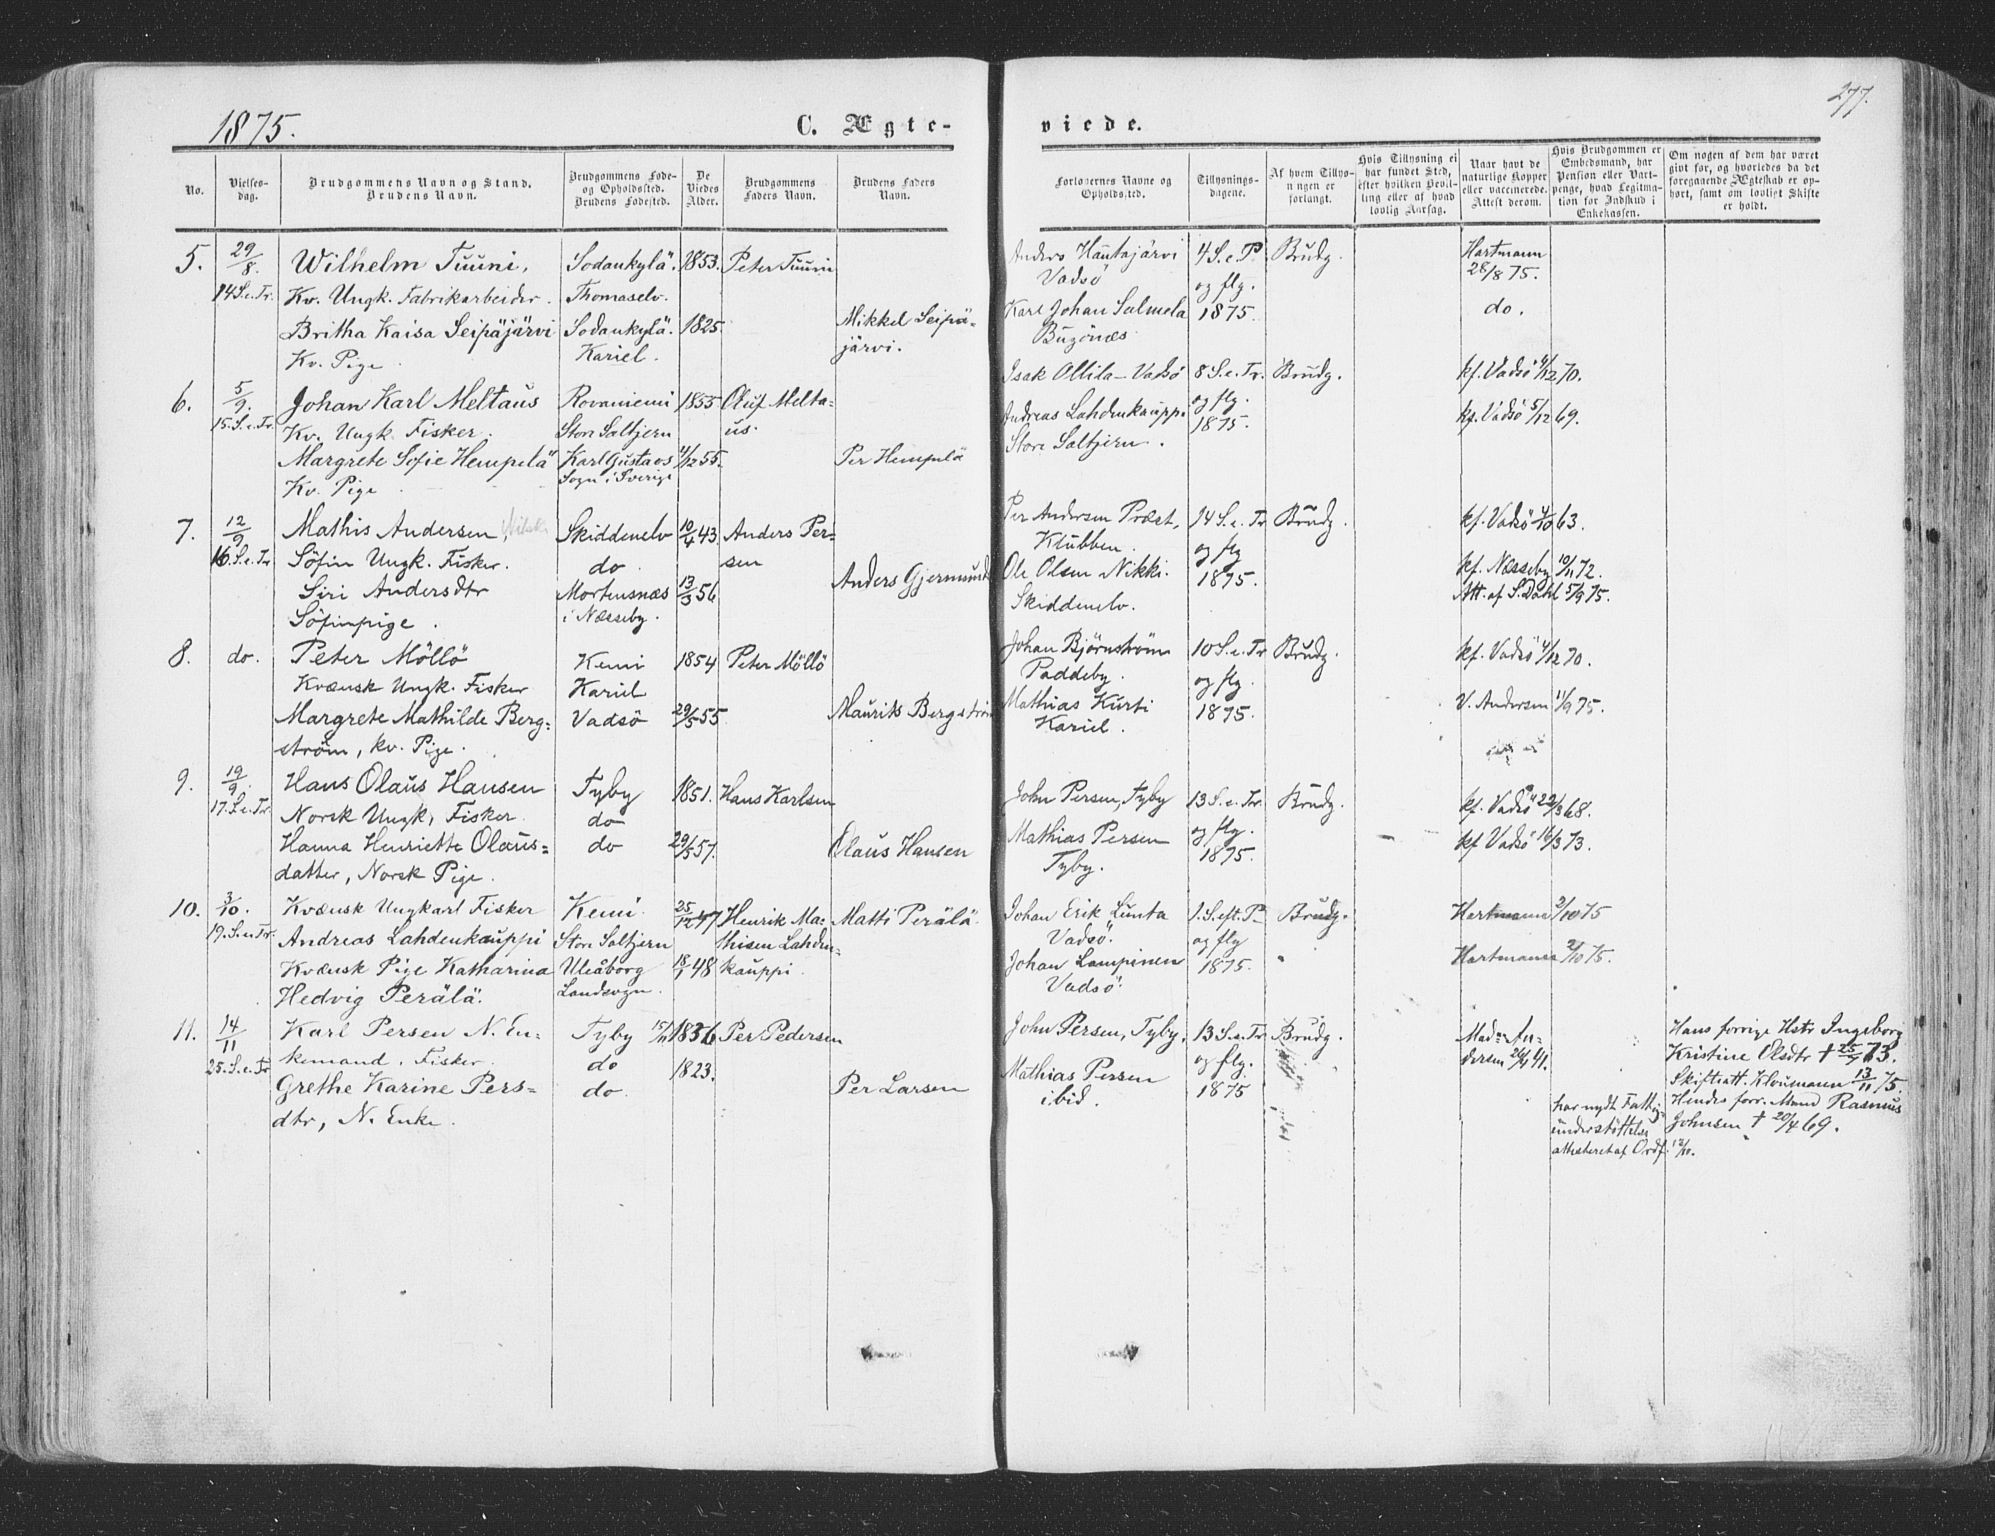 1875.
277.
C. Ægte-
viede.
No.
Vielses-
dag.
Brudgommens Navn og Stand.
Brudens Navn.
Brudgommens Føde-
og Opholdsted.
Brudens Fødested.
De
Viedes
Alder.
Brudgommens
Faders Navn.
Brudens Faders
Navn.
Forlovernes Navne og
Opholdsted.
Tillysnings-
dagene.
Af hvem Tillys-
ningen er
forlangt.
Hvis Tillysning ei
har fundet Sted,
efter hvilken Bevil-
ling eller af hvad
lovlig Aarsag.
Naar havt de
naturlige Kopper
eller vaccinerede.
Attest derom.
Hvis Brudgommen er
Embedsmand, har
Pension eller Vart-
penge, hvad Legitima-
tion for Indskud i
Enkekassen.
Om nogen af dem har været
givt før, og hvorledes da det
foregaaende Ægteskab er op-
hørt, samt om lovligt Skifte
er holdt.
5. 29/8. Wilhelm Tuuni, Sodankylä. 1853. Peter Tuuni
14 S. e. Tr. Kv. Ungk. Fabrikarbeider. Thomaselv.
Britha Kaisa Seipäjärvi Sodankylä. 1825. Mikkel Seipä-
Kv. Pige Kariel. järvi.
Anders Hautajärvi 4 S. e. P Brudg. Hartmann
Vadsö og flg. 28/8 75.
Karl Johan Salmela 1875. do.
Bugönæs
6. 5/9. Johan Karl Meltaus Rovaniemi 1855 Oluf Melta-
15. S. e. Tr. Kv. Ungk. Fisker. Store Saltjern us.
Margrete Sofie Hempelä Karl Gustavs 4/12 55. Per Hempelä
Kv. Pige Sogn i Sverige
Isak Ollila - Vadsö 8 S. e. Tr. Brudg. kf. Vadsö 4/12 70.
og flg.
Andreas Lahdenkauppi 1875. kf. Vadsö 5/12 69.
Store Saltjern.
7. 12/9 Mathis Andersen, Skiddenelv 10/4 43. Anders Per-
16. S. e. Tr Söfin Ungk. Fisker. do. sen
Siri Andersdtr Mortensnæs 13/3 56 Anders Gjermunds
Söfinpige. i Næsseby.
Per Andersen Præst, 14 S. e. Tr Brudg. kf. Vadsö 4/10 63.
Klubben. og flg
Ole Olsen Nikki. 1875. kf. Næsseby 10/11 72.
Skiddenelv. Att. af S. Dahl 5/9 75.
8. do. Peter Möllö Kemi 1854 Peter Möllö
Kvænsk Ungk. Fisker Kariel
Margrete Mathilde Berg- Vadsö 29/5 55 Maurits Bergström
ström, kv. Pige.
Johan Bjørnström 10 S. e. Tr Brudg. kf. Vadsö 4/12 70.
Paddeby. og flg.
Mathias Kurti 1875. V. Andersen 11/9 75.
Kariel.
9. 19/9. Hans Olaus Hansen Tyby 1851. Hans Karlsen
17. S. e. Tr. Norsk Ungk, Fisker. do
Hanna Henriette Olaus- do 29/5 57. Olaus Hansen
datter, Norsk Pige.
John Persen, Tyby 13 S. e. Tr. Brudg. kf. Vadsö 22/3 68.
Mathias Persen og flg. kf Vadsö 16/3 73.
Tyby. 1875.
10. 3/10. Kvænsk Ungkarl Fisker Kemi 25/12 47 Henrik Ma- Matti Perälä.
19. S. e. Tr. Andreas Lahdenkauppi Store Saltjern thisen Lahden-
Kvænsk Pige Katharina Uleåborg 18/1 48 kauppi.
Hedvig Perälä. Landsogn.
Johan Erik Lunta 1. S. eft. P. Brudg. Hartmann 2/10 75
Vadsö. og flg
Johan Lampinen 1875. Hartmann 2/10 75.
Vadsö.
11. 14/11 Karl Persen N. En- Tyby 15/11 1836 Per Pedersen
25. S. e. Tr kemand, Fisker. do
Grethe Karine Pers- do. 1823. Per Larsen
dtr, N. Enke.
John Persen, Tyby, 13 S. e. Tr Brudg. Mad: An- Hans forrige Hstr Ingeborg
og flg. dersen 26/9 41. Kristine Olsdtr † 25/9 73.
Mathias Persen 1875 Skifteatt. Kloumann 13/11 75.
ibid. har nydt Fattig- Hendes forr. Mand Rasmus
understöttelse Johnsen † 20/4 69.
attesteret af Ordf. 12/11.